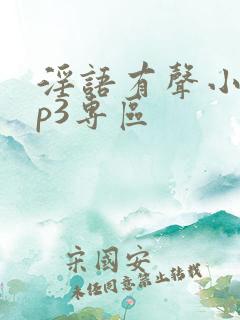 淫語有聲小
p3專區
宋國安
未经同意禁止转载